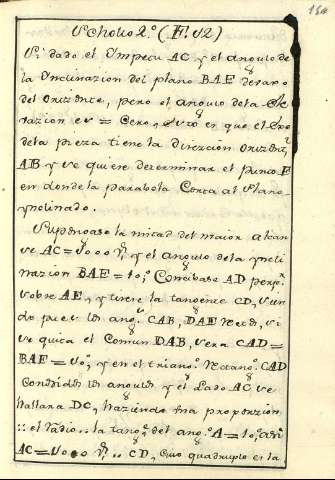 154
Scholio 2.º (F. 52)
Si dado el Ympetu AC y el angulo de
la Ynclinazion del plano BAE devaxo
del Orizonte, pero el angulo dela Ele
vazion es = Cero, esto es que el Exe
dela pieza tiene la direczion Orizontl
AB y se quiere determinar el punto F
en donde la parabola Corta al Plano
ynclinado.
Supongase la mitad del maior alcan
se AC=5000 ps, y el angulo dela yncli
nazion BAE=10,º Concibase AD perpr
sobre AE, y tirese la tangente CD, sien
do pues los angs CAB, DAE Rectos, si
se quita el Comun DAB, sera CAD=
BAE=10º, y en el triango Rectango CAD
Conozidos los angulos y el Lado AC se
hallara DC, haziendo una proporzion
:: el Radio.. la tangte del ango A=10º asi
AC=5000 ps.. CD, Cuio quadruplo es la